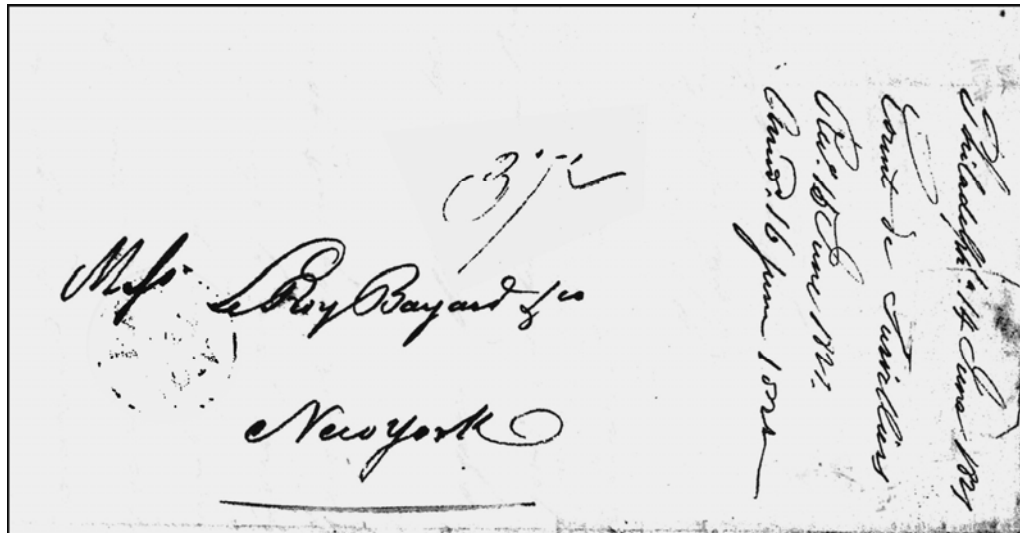 Messrs
LeRoy Bayard & Co
New York
Philadelphia 14 June 1821
Count de Survilliers
Recd. 15 June 1821
Answd. 16 June